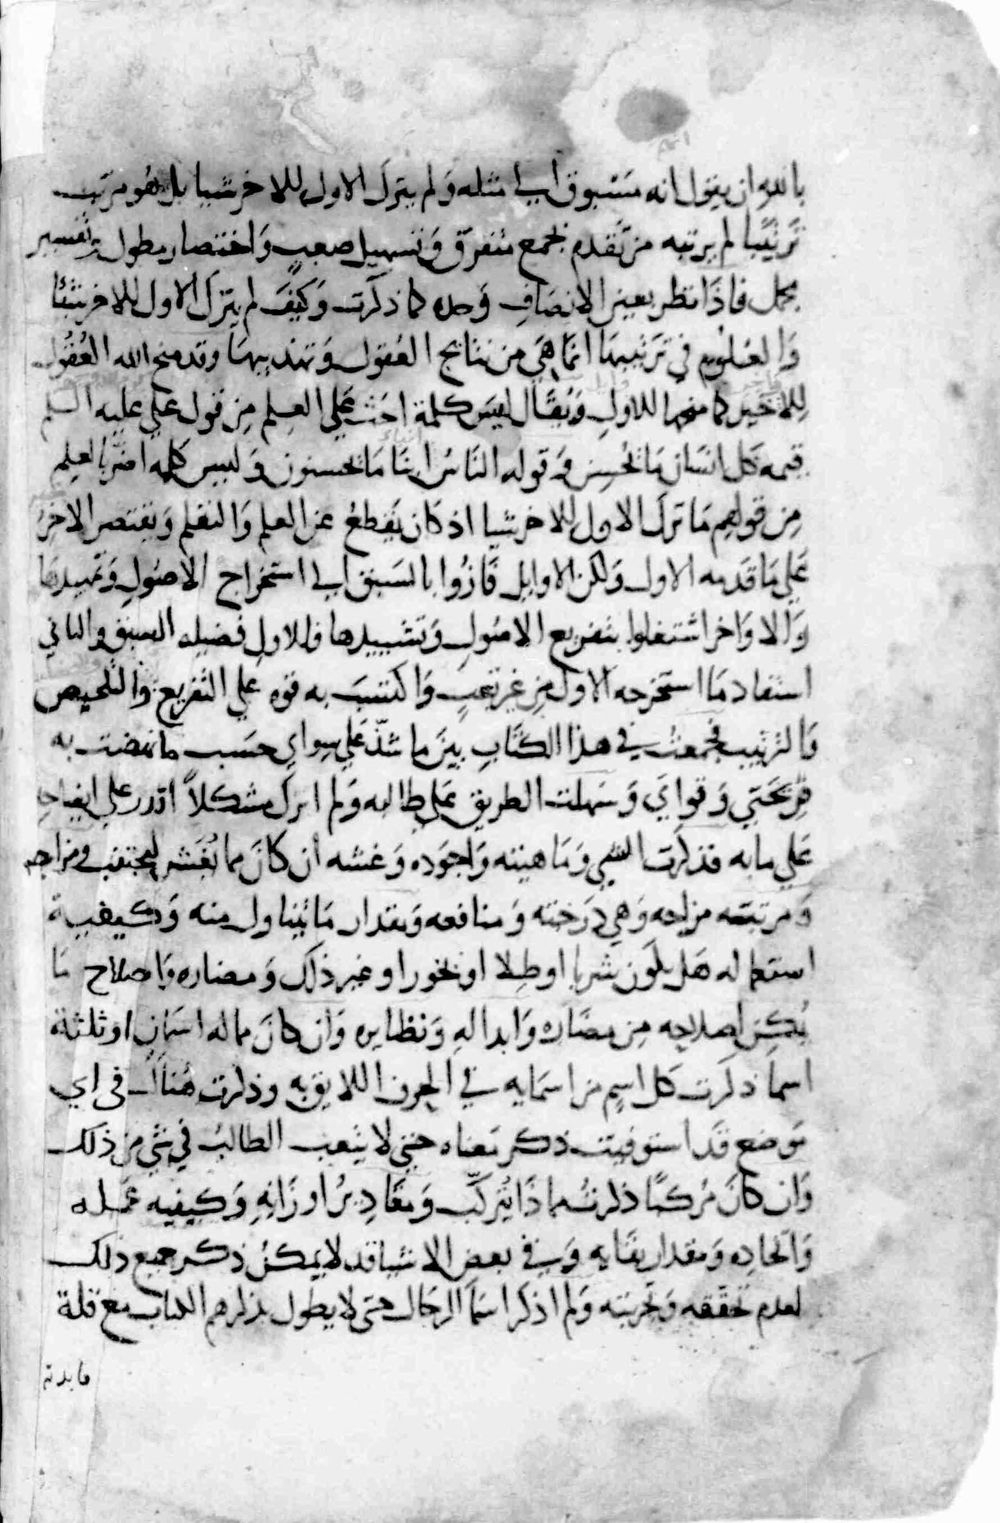 بالله ان يقول انه مسبوق الى مثله ولم يترك الاول للاخر شيا بل هو مرتب
ترتيبا لم يرتبه من تقدم بجمع متفرق وتسهيل صعب واختصار مطول وتفسير
مجمل فاذا نظر بعين الانصاف وجده كما ذكرت وكيف لم يترك الاول للاخر شيئا
والعلوم في ترتيبها انما هي من نتايج العقول وتهذيبها وقد منح الله العقول
للاخير كما منحها للاول ويقال ليس كلمة احث على العلم من قول علي عليه السلم
قيمه كل انسان ما يحسن وقوله الناس ابنا ما يحسنون وليس كلمه اضر بالعلم
من قولهم ما ترك الاول للاخر شيا اذ كان يقطع عن العلم والتعلم ويقتصر الاخر
على ما قدمه الاول ولكن الاوايل فازوا بالسبق الى استخراج الاصول وتمهيدها
والاواخر اشتغلوا بتفريع الاصول وتشييدها فللاول فضيله السبق والثاني
استفاد ما استخرجه الاول من غير تعب واكتسب به قوه على التفريع والتلخيص
والترتيب فجمعت في هذا الكتاب بين ما شذ على سواي حسب ما نهضت به
قريحتي وقواي وسهلت الطريق على طالبه ولم اترك مشكلا اقدر على ايضاحه
على ما به فذكرت الشي وماهيته واجوده وغشه ان كان مما يغش ليجتنب ومزاجه
ومرتبه مزاجه وهي درجته ومنافعه ومقدار ما يتناول منه وكيفية
استعماله هل يكون شربا او طلا او بخورا او غير ذلك ومضاره واصلاح ما
يمكن اصلاحه من مضاره وابداله ونظايره وان كان ما له اسمان او ثلثة
اسما ذكرت كل اسم من اسمايه في الحرف اللايق به وذكرت هناك في اي
موضع قد استوفيت ذكر معناه حتى لا يتعب الطالب في شي من ذلك
وان كان مركبا ذكرت مما ذا يتركب ومقادير اوزانه وكيفيه عمله
واتخاده ومقدار بقايه وفي بعض الاشيا قد لا يمكن ذكر جميع ذلك
لعدم تحققه وتجربته ولم اذكر اسما الرجال حتى لا يطول بذكرهم الكتاب مع قلة
فايدته